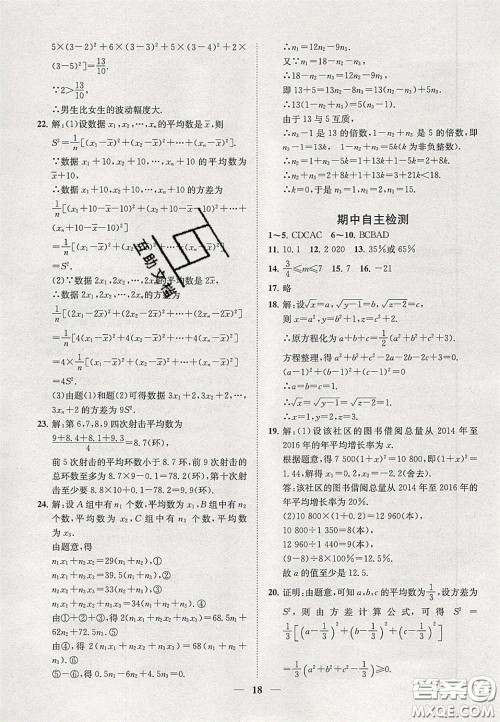 5×(3-2)²+6×(3-3)²+5×(3-4)²+2×
(3-5)²]=13/10.
∵2>13/10,
∴男生比女生的波动幅度大.
22. 解:(1)设数据x₁,x₂,…,xₙ的平均数为x̄,则
S²=1/n[(x₁-x̄)²+(x₂-x̄)²+…+(xₙ-x̄)²].
∵数据x₁+10,x₂+10,…,xₙ+10的平均数为
x̄+10,
∴数据x₁+10,x₂+10,…,xₙ+10的方差为
1/n[(x₁+10-x̄-10)²+(x₂+10-x̄-10)²+…+
(xₙ+10-x̄-10)²]
=1/n[(x₁-x̄)²+(x₂-x̄)²+…+(xₙ-x̄)²]
=S².
(2)∵数据2x₁,2x₂,…,2xₙ的平均数为2x̄,
∴数据2x₁,2x₂,…,2xₙ的方差为
1/n[(2x₁-2x̄)²+(2x₂-2x̄)²+…+(2xₙ-2x̄)²]
=1/n[4(x₁-x̄)²+4(x₂-x̄)²+…+4(xₙ-x̄)²]
=4×1/n[(x₁-x̄)²+(x₂-x̄)²+…+(xₙ-x̄)²]
=4S².
(3)由题(1)和题(2)可得数据3x₁+2,3x₂+
2,…,3xₙ+2的方差为9S².
23. 解:第6,7,8,9四次射击平均数为
(9+8.4+8.1+9.3)/4=8.7(环),
前5次射击的平均环数小于8.7环,前9次射击的
总环数至多为8.7×9-0.1=78.2(环),第十次射
击至少要8.8×10+0.1-78.2=9.9(环).
24. 解:设A组中有n₁个数,平均数为x₁,B组中有n₂
个数,平均数为x₂,C组中有n₃个数,平均数
为x₃.
由题意,得
n₁x₁+n₂x₂=29(n₁+n₂),①
n₁x₁+n₃x₃=33(n₁+n₃),②
n₂x₂+n₃x₃=39.5(n₂+n₃),③
n₁x₁+n₂x₂+n₃x₃=34(n₁+n₂+n₃).④
由①+②+③,得2(n₁x₁+n₂x₂+n₃x₃)=62n₁+
68.5n₂+72.5n₃.⑤
由④×2,得2(n₁x₁+n₂x₂+n₃x₃)=68n₁+
68n₂+68n₃.⑥
⑤-⑥,得-6n₁+0.5n₂+4.5n₃=0.
∴n₁=12n₁-9n₃.
又∵n₁=18-n₂-n₃,
∴12n₁-9n₃=18-n₁-n₃,
即13+5=13n₁-8n₃-13+8.
∴13(n₁-1)=8(n₃-1).
由于13与5互质,
∴n₃-1是13的倍数,n₁-1是8的倍数,即
n₃-1=13k,n₁-1=5k(k为非负整数).
∴n₃=13k+1,n₁=8k+1.
∴n₂=18-8k-1-13k-1=16-21k.
∴k=0.
∴n₁=1,n₃=1,n₂=16.
期中自主检测
1~5. CDCAC 6~10. BCBAD
11. 10.1 12. 2 020 13. 35%或65%
14. 3/4≤m≤7 15. 7 16. -21
17. 略
18. 解:设√x=a,√(y-1)=b,√(z-2)=c,
则x=a²,y=b²+1,z=c²+2.
∴原方程化为a+b+c=1/2(a²+b²+c²+3).
方程整理,得a²+b²+c²-2a-2b-2c+3=0.
即(a-1)²+(b-1)²+(c-1)²=0.
∴a=b=c=1.
∴√x=√(y-1)=√(z-2)=1.
∴x=1,y=2,z=3.
19. 解:(1)设该社区的图书借阅总量从2014年至
2016年的年平均增长率为x.
根据题意,得7 500(1+x)²=10 800.
解得x₁=0.2,x₂=-2.2(舍去).
答:该社区的图书借阅总量从2014年至2016年的
年平均增长率为20%.
(2)10 800×(1+0.2)=12 960(本),
10 800÷1 350=8(本),
12 960÷1 440=9(本).
(9-8)÷8×100%=12.5%.
故a的值至少是12.5.
20. 证明:由题意,可知a,b,c的平均数为1/3,设方差
为S²,则由方差计算公式,可得S²=
1/3[(a-1/3)²+(b-1/3)²+(c-1/3)²]
=1/3[a²+b²+c²-1/3]≥0.
18
互助文档
答案圈
MXQE.COM